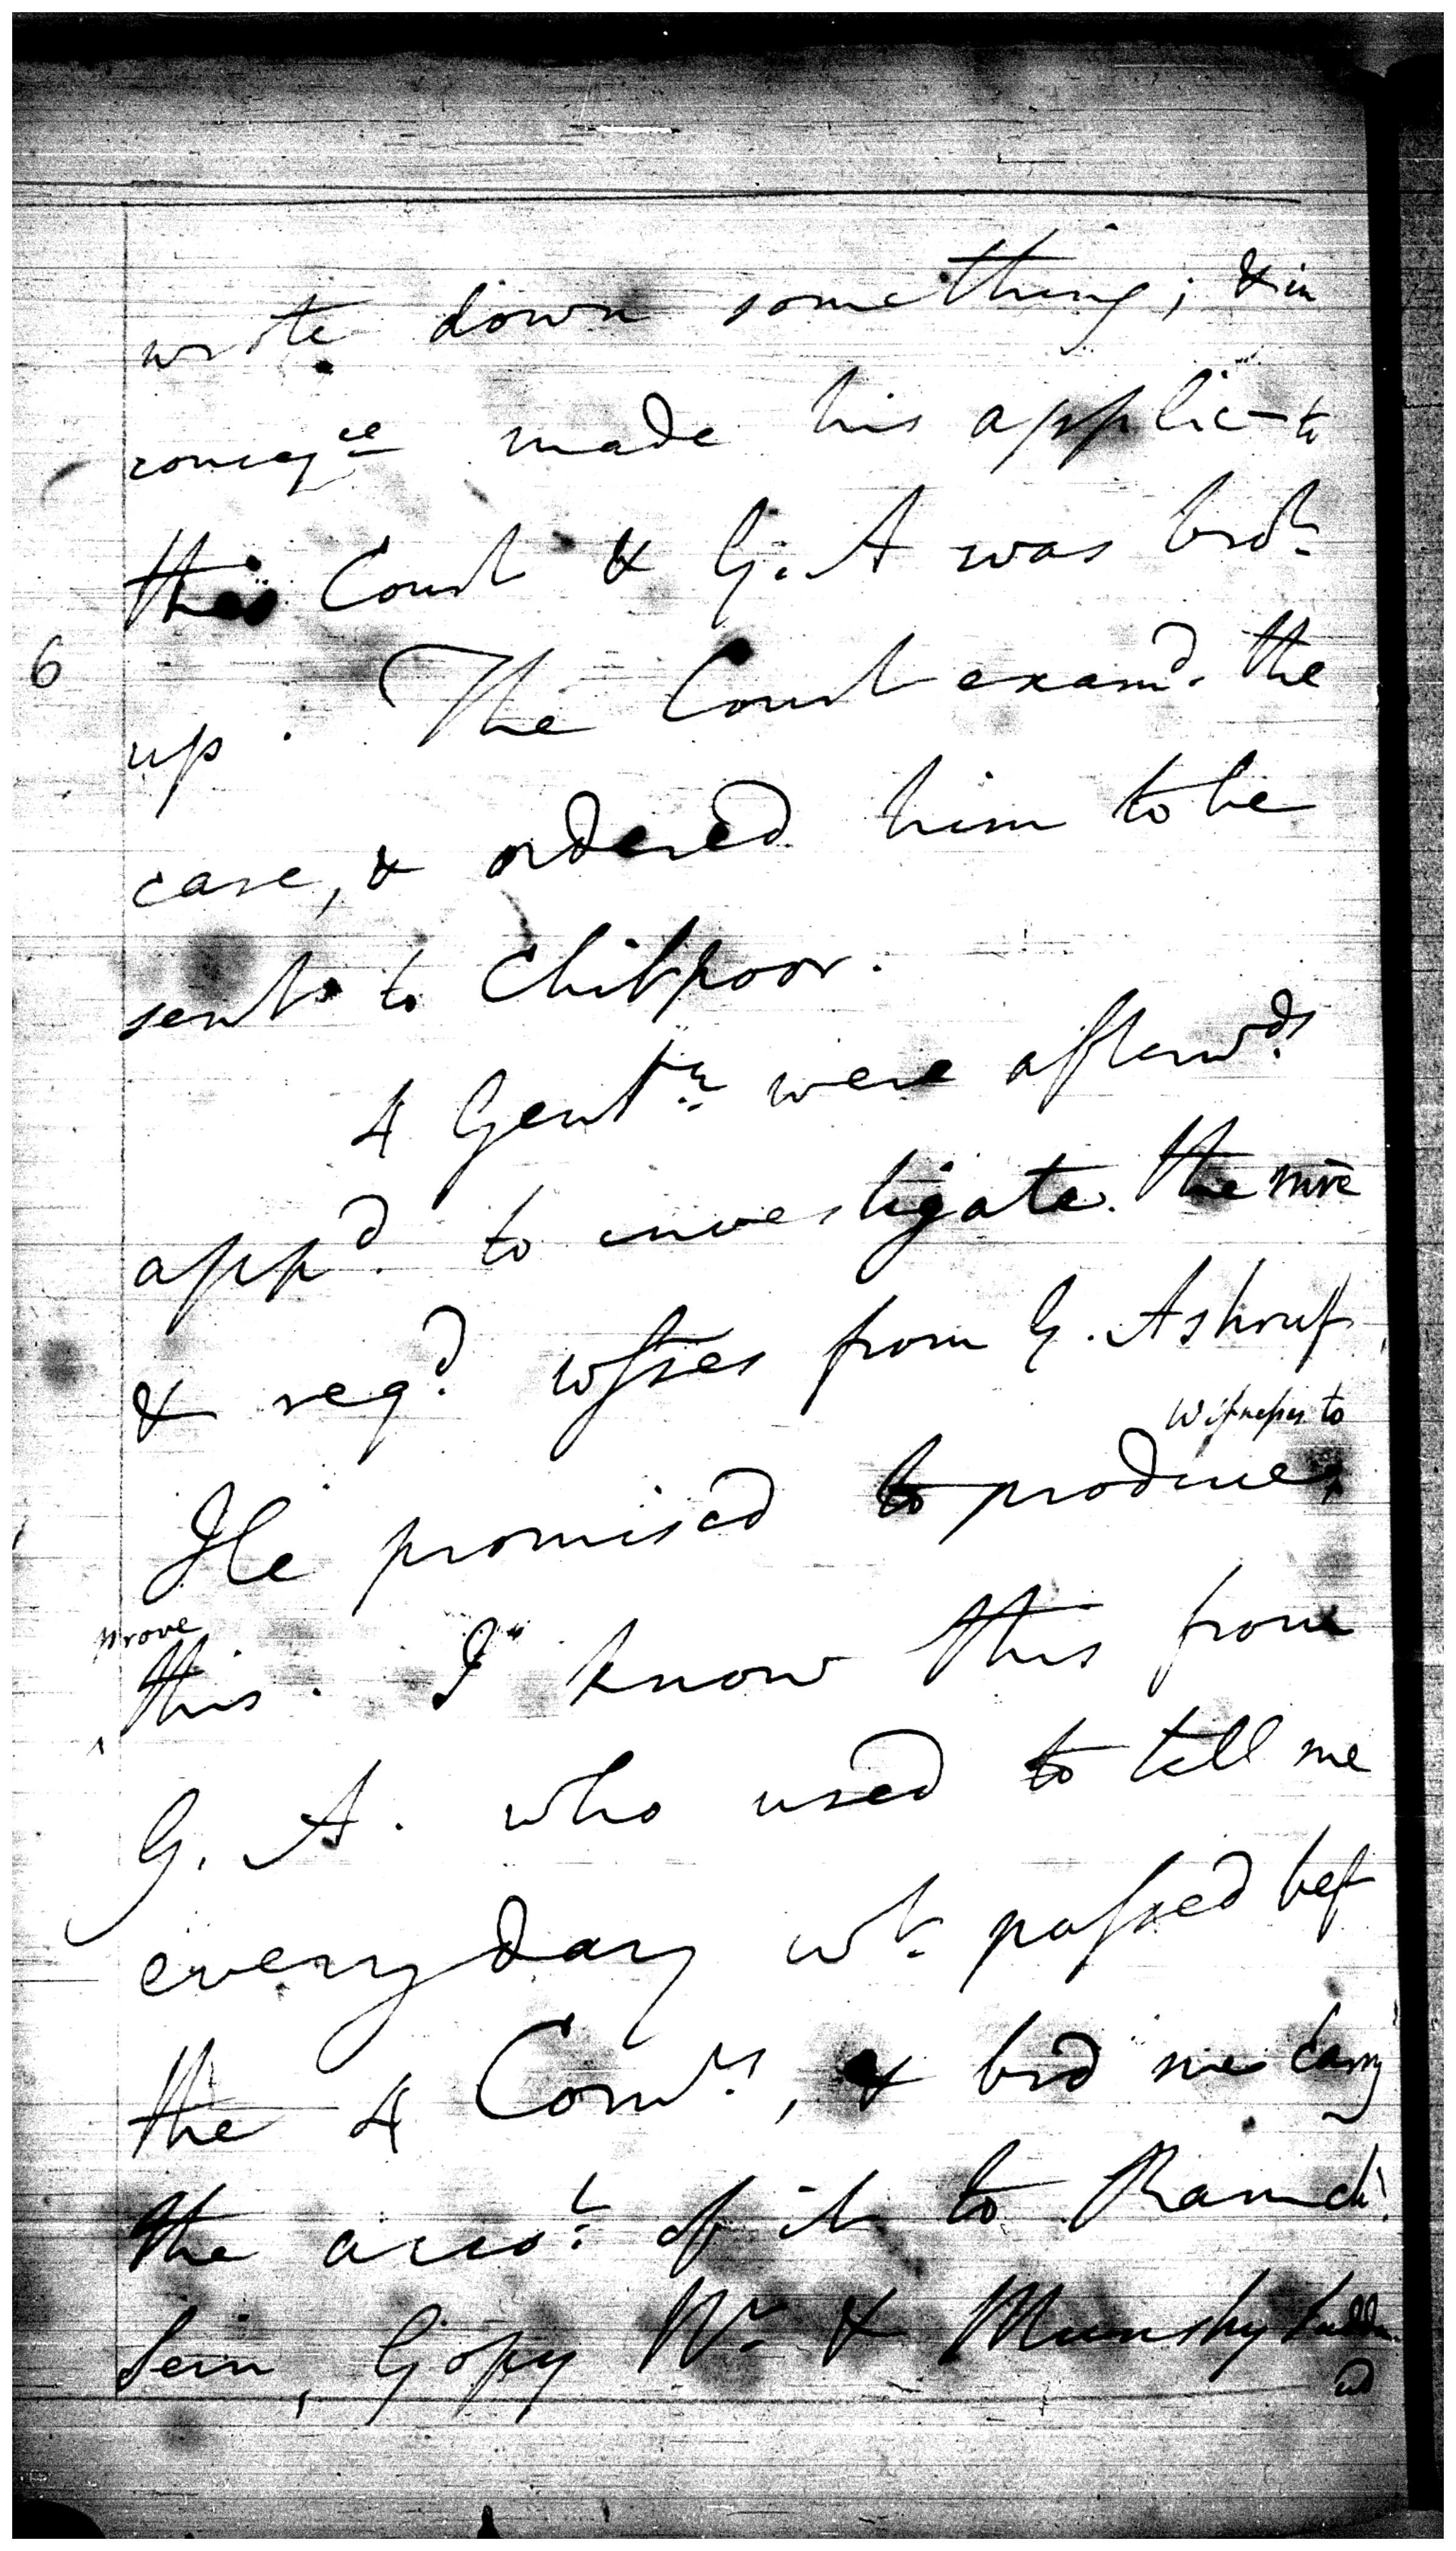 wrote down something; & in
conseqce made his applicn to
this Court & G. A was brot
6
up. The Court examd. the
case, & ordered him to be
sent to Chitpoor.
4 Gentn were afterwds
appd. to investigate the
& reqd. wsses from G. Ashruf
Witnesses to
He promised to produce
prove
this. I know this from
G. A. who used to tell me
every day wt. passed bef
the 4 Comrs, & bid me carry
the accot. of it to Ramch.
Sein, Gopy Nr & Munshy